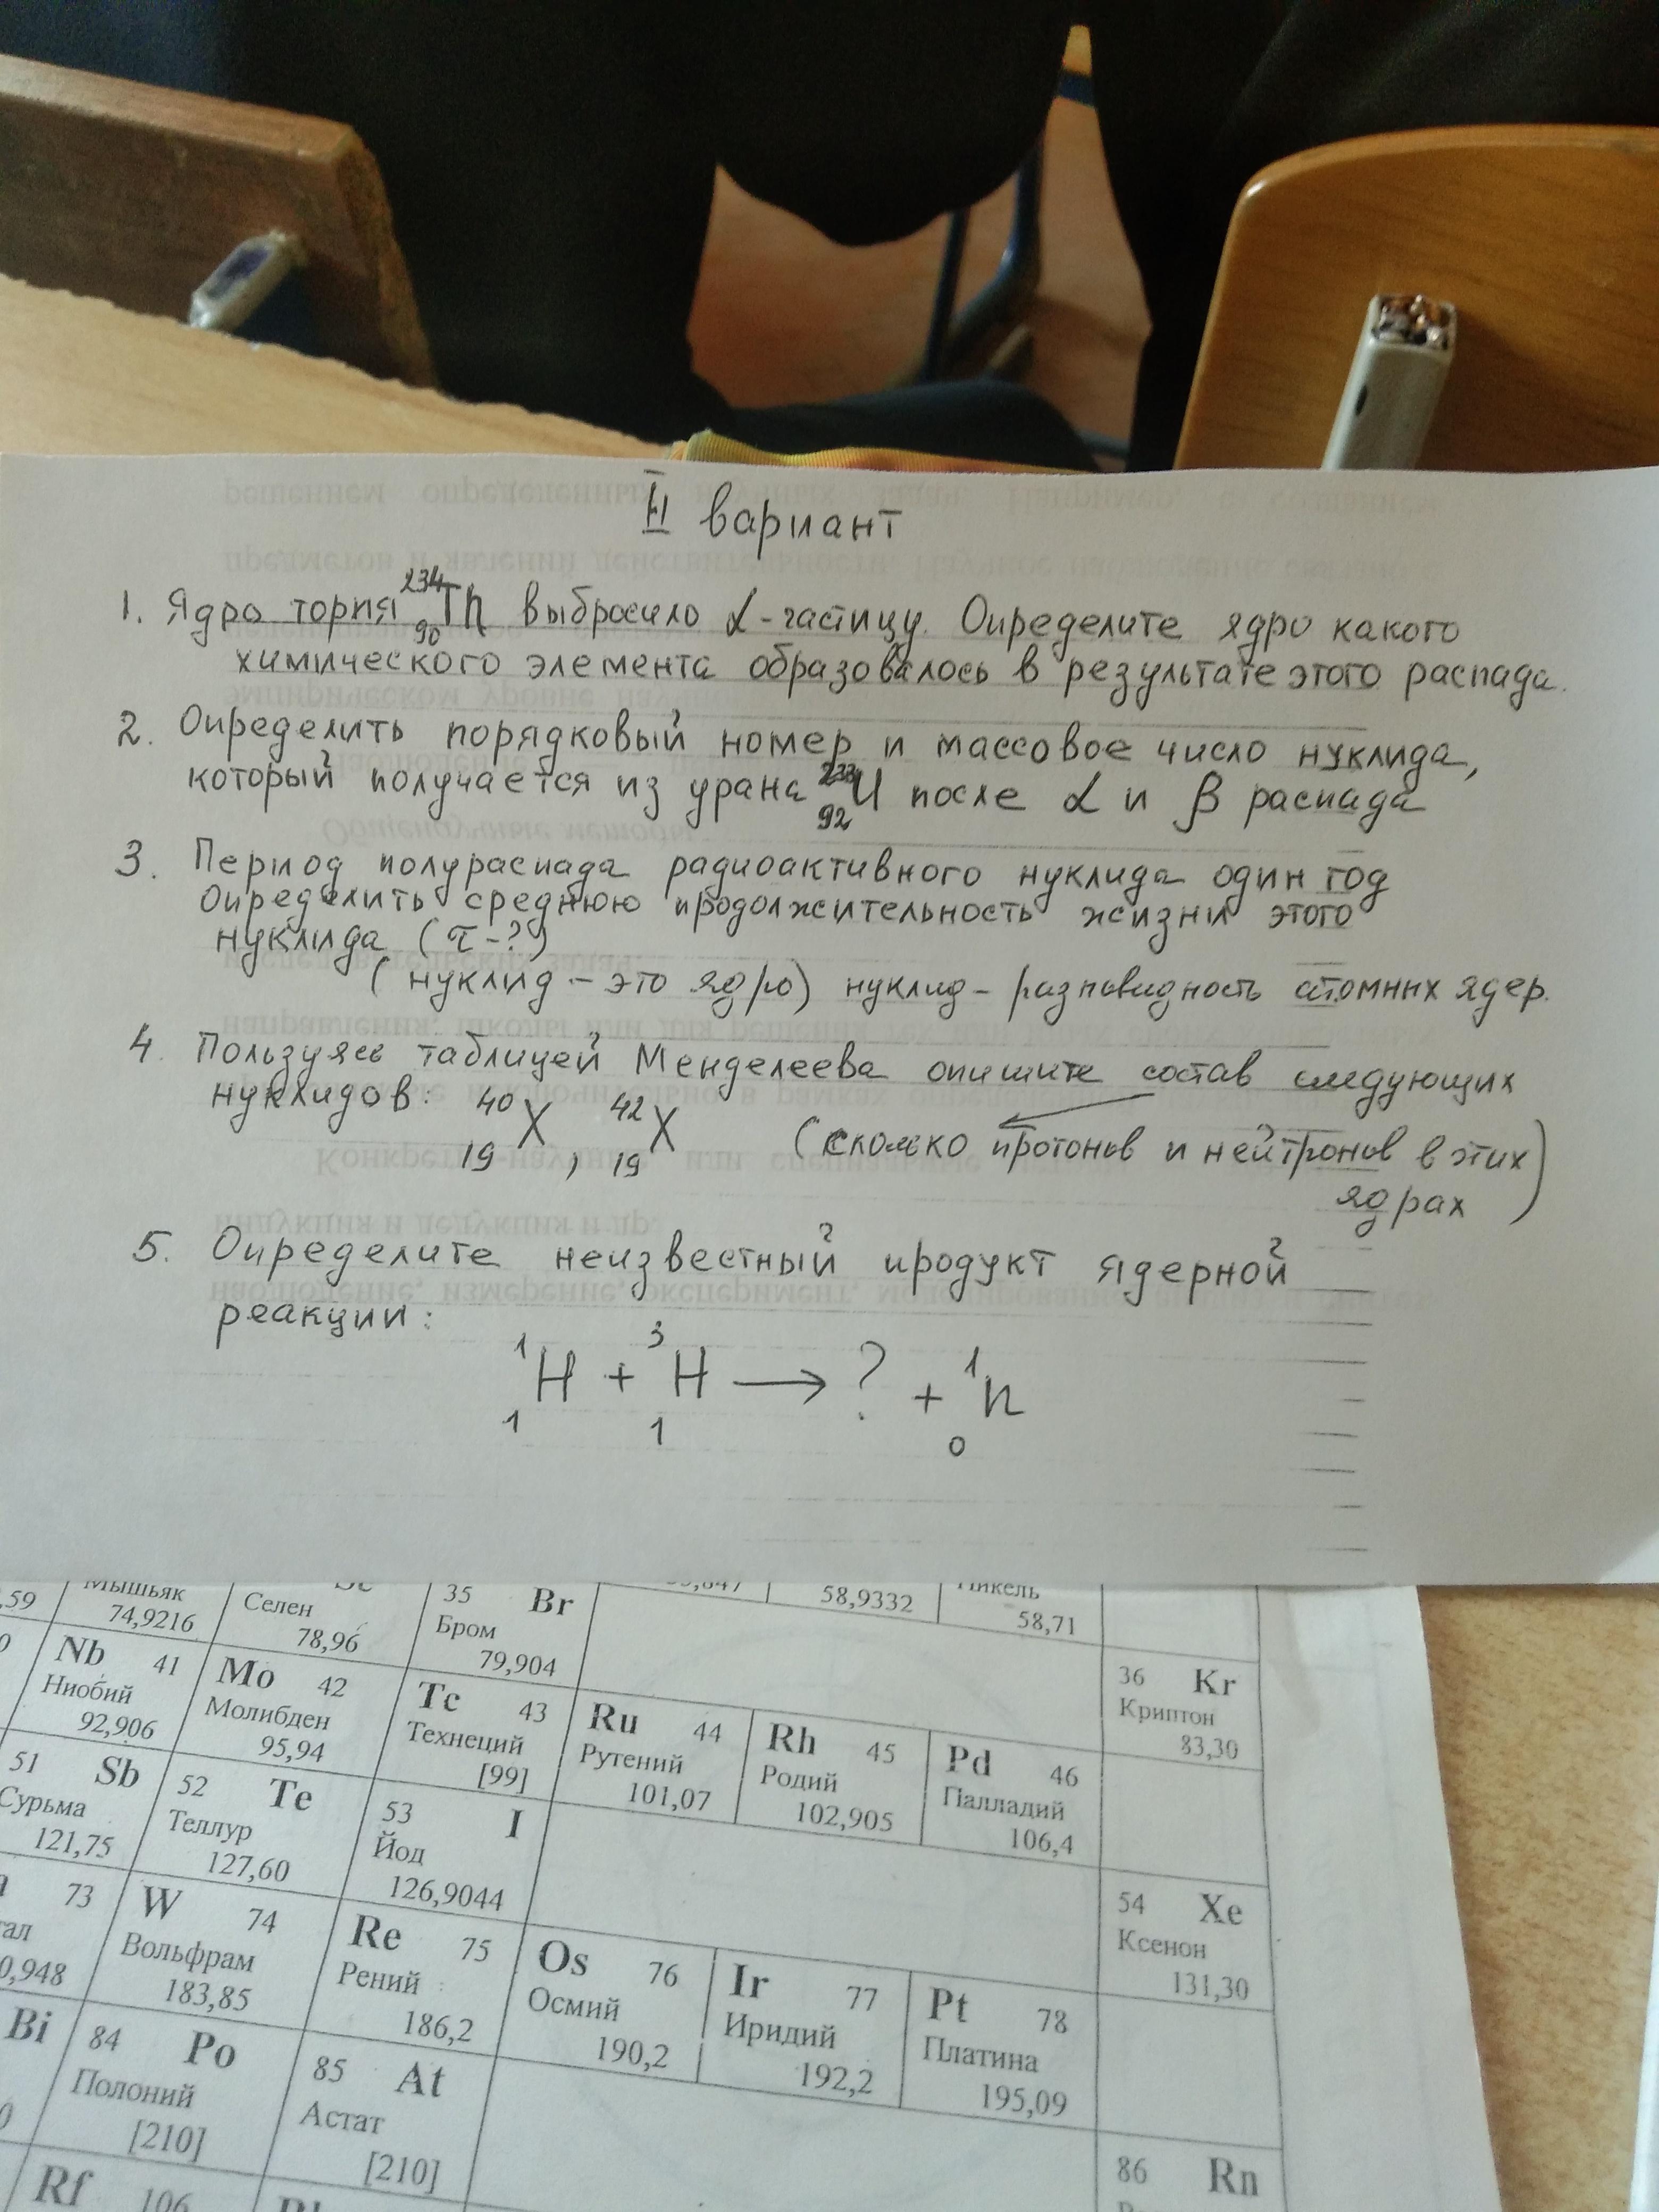 II вариант
1. Ядро тория ²³⁴₉₀Th выбросило α-частицу. Определите ядро какого
химического элемента образовалось в результате этого распада.
2. Определить порядковый номер и массовое число нуклида,
который получается из урана ₉₂U после α и β распада
3. Период полураспада радиоактивного нуклида один год
Определить среднюю продолжительность жизни этого
нуклида (τ-?)
(нуклид – это ядро) нуклид – разновидность атомных ядер.
4. Пользуясь таблицей Менделеева опишите состав следующих
нуклидов: ⁴⁰₁₉X, ⁴²₁₉X (сколько протонов и нейтронов в этих
ядрах)
5. Определите неизвестный продукт ядерной
реакции:
¹₁H + ³₁H → ? + ¹₀n
,59 Мышьяк 74,9216
Селен 78,96
35 Br Бром 79,904
58,9332
Никель 58,71
Nb 41 Ниобий 92,906
Mo 42 Молибден 95,94
Tc 43 Технеций [99]
Ru 44 Рутений 101,07
Rh 45 Родий 102,905
Pd 46 Палладий 106,4
36 Kr Криптон 83,30
51 Sb Сурьма 121,75
52 Te Теллур 127,60
53 I Йод 126,9044
54 Xe Ксенон 131,30
73 0,948
W 74 Вольфрам 183,85
Re 75 Рений 186,2
Os 76 Осмий 190,2
Ir 77 Иридий 192,2
Pt 78 Платина 195,09
Bi
84 Po Полоний [210]
85 At Астат [210]
86 Rn
Rf 106